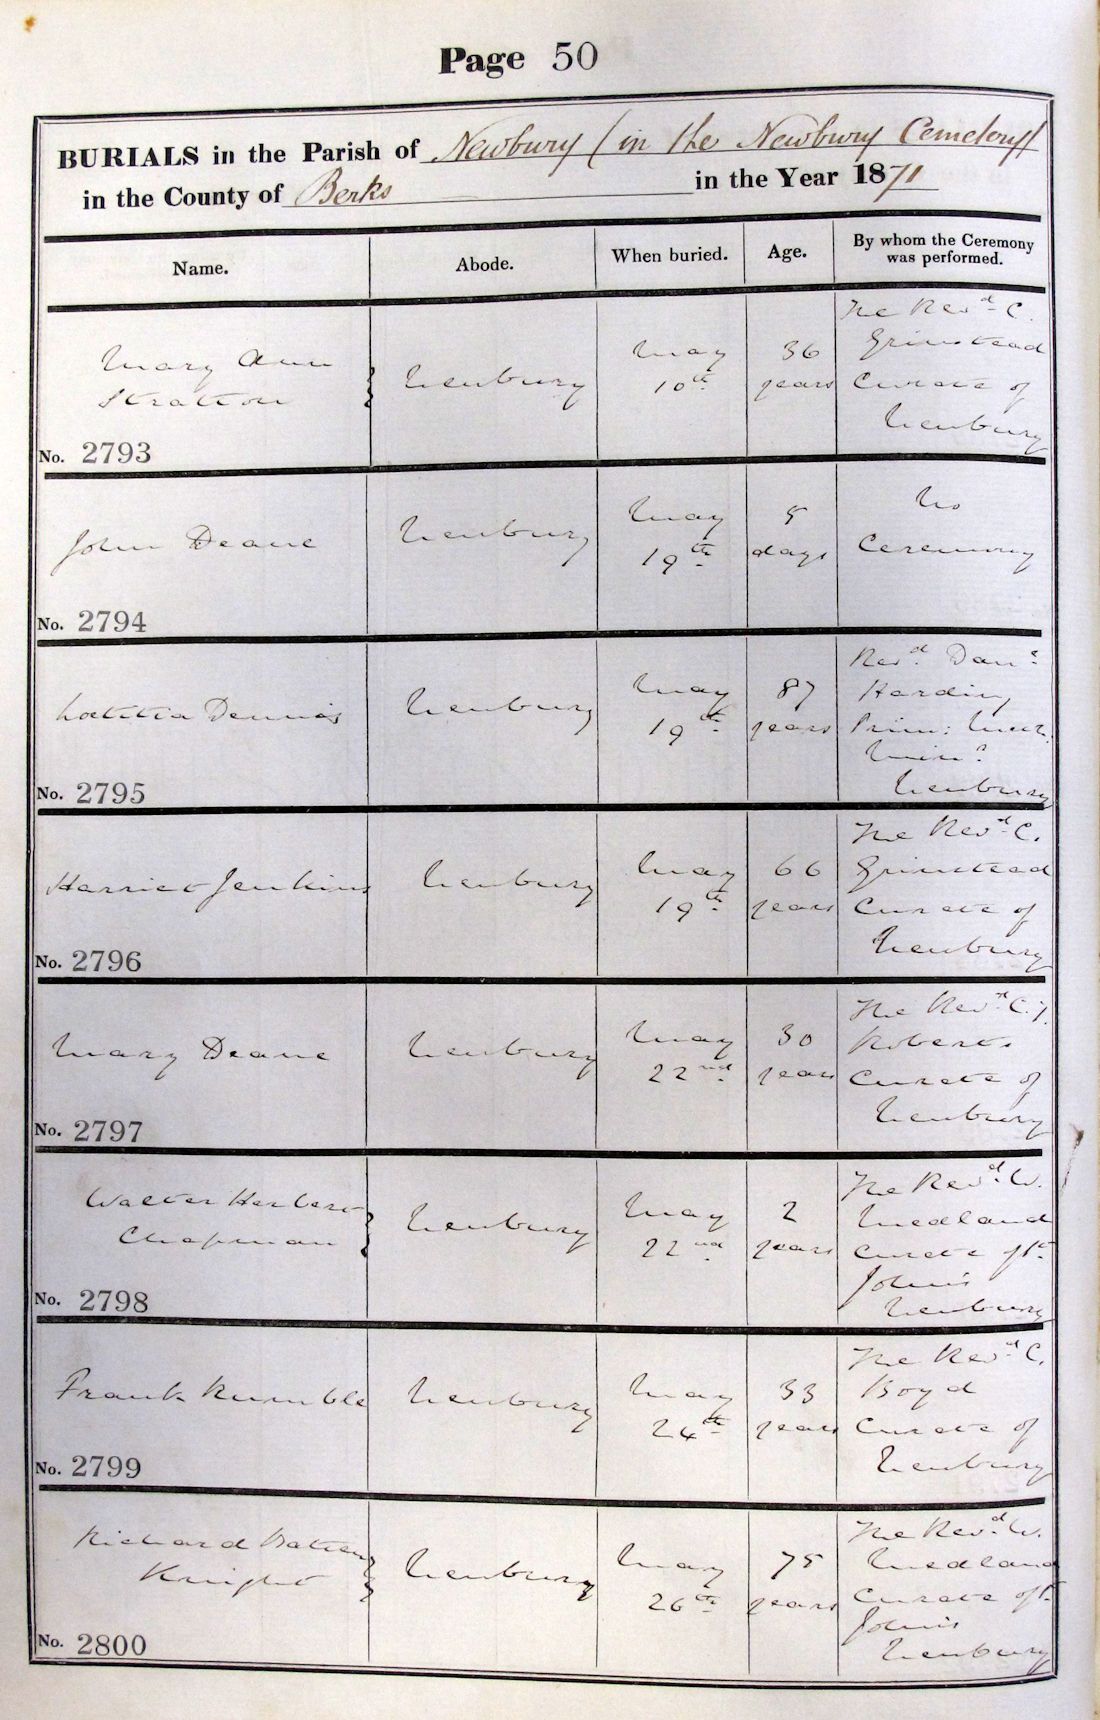 Page 50
BURIALS in the Parish of Newbury (in the Newbury Cemetery)
in the County of Berks in the Year 1871
Name. Abode. When buried. Age. By whom the Ceremony was performed.
Mary Ann
Stratton
Newbury
May
10th
36
years
The Revd. C.
Grimstead
Curate of
Newbury
No. 2793
John Deane
Newbury
May
19th
5
days
No
Ceremony
No. 2794
Lætitia Dennis
Newbury
May
19th
87
years
Revd. Danl.
Harding
Prim: Meth.
Minr.
Newbury
No. 2795
Harriet Jenkins
Newbury
May
19th
66
years
The Revd. C.
Grimstead
Curate of
Newbury
No. 2796
Mary Deane
Newbury
May
22nd
30
years
The Revd. C.
Roberts
Curate of
Newbury
No. 2797
Walter Herbert
Chapman
Newbury
May
22nd
2
years
The Revd. W.
Medland
Curate of St.
John's
Newbury
No. 2798
Frank Rumble
Newbury
May
24th
33
years
The Revd. C.
Boyd
Curate of
Newbury
No. 2799
Richard
Knight
Newbury
May
26th
75
years
The Revd. W.
Medland
Curate of St.
John's
Newbury
No. 2800